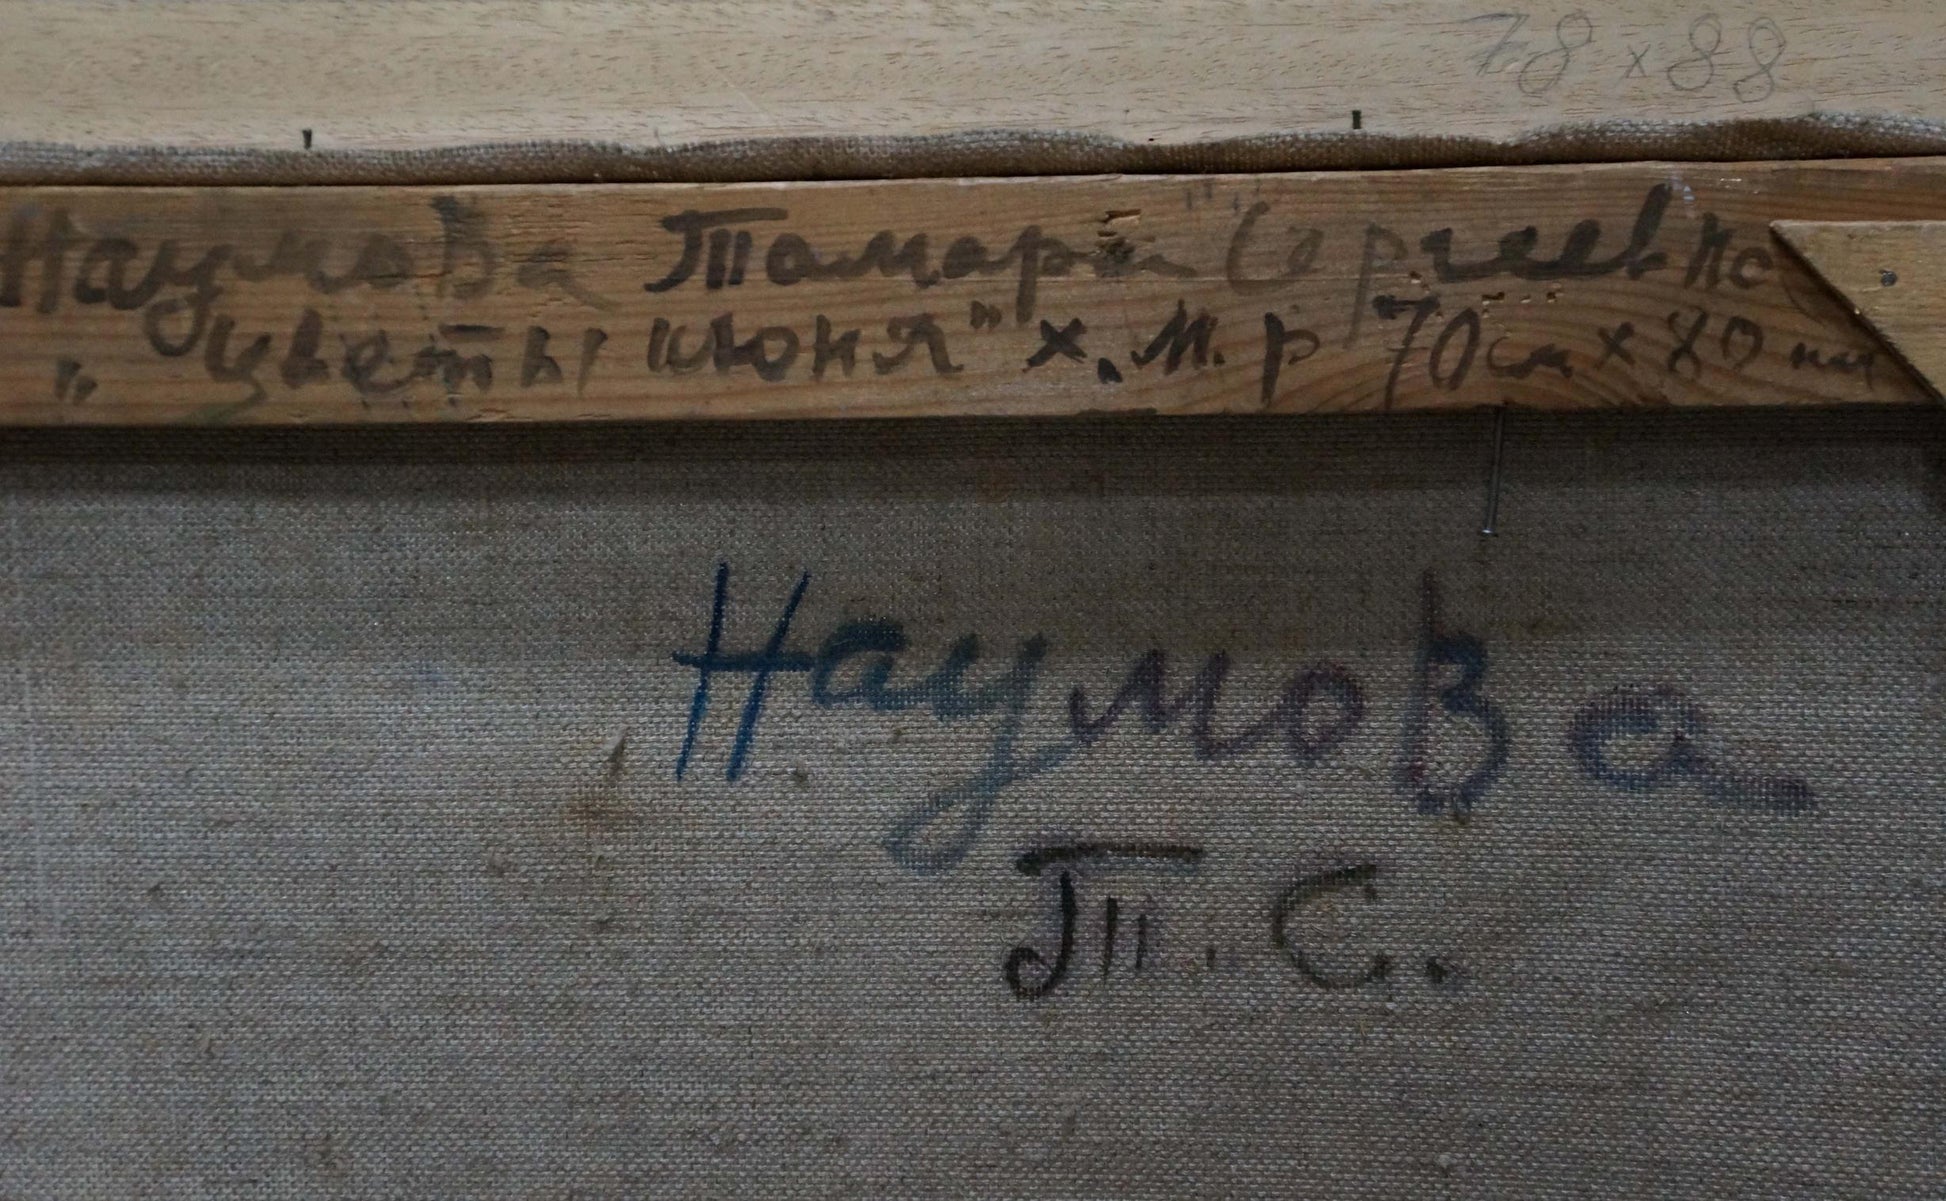 78 x 88
Наумова Тамара Сергеевна
„Цветы июня" х. м. р 70 см х 80 см
Наумова
Т. С.